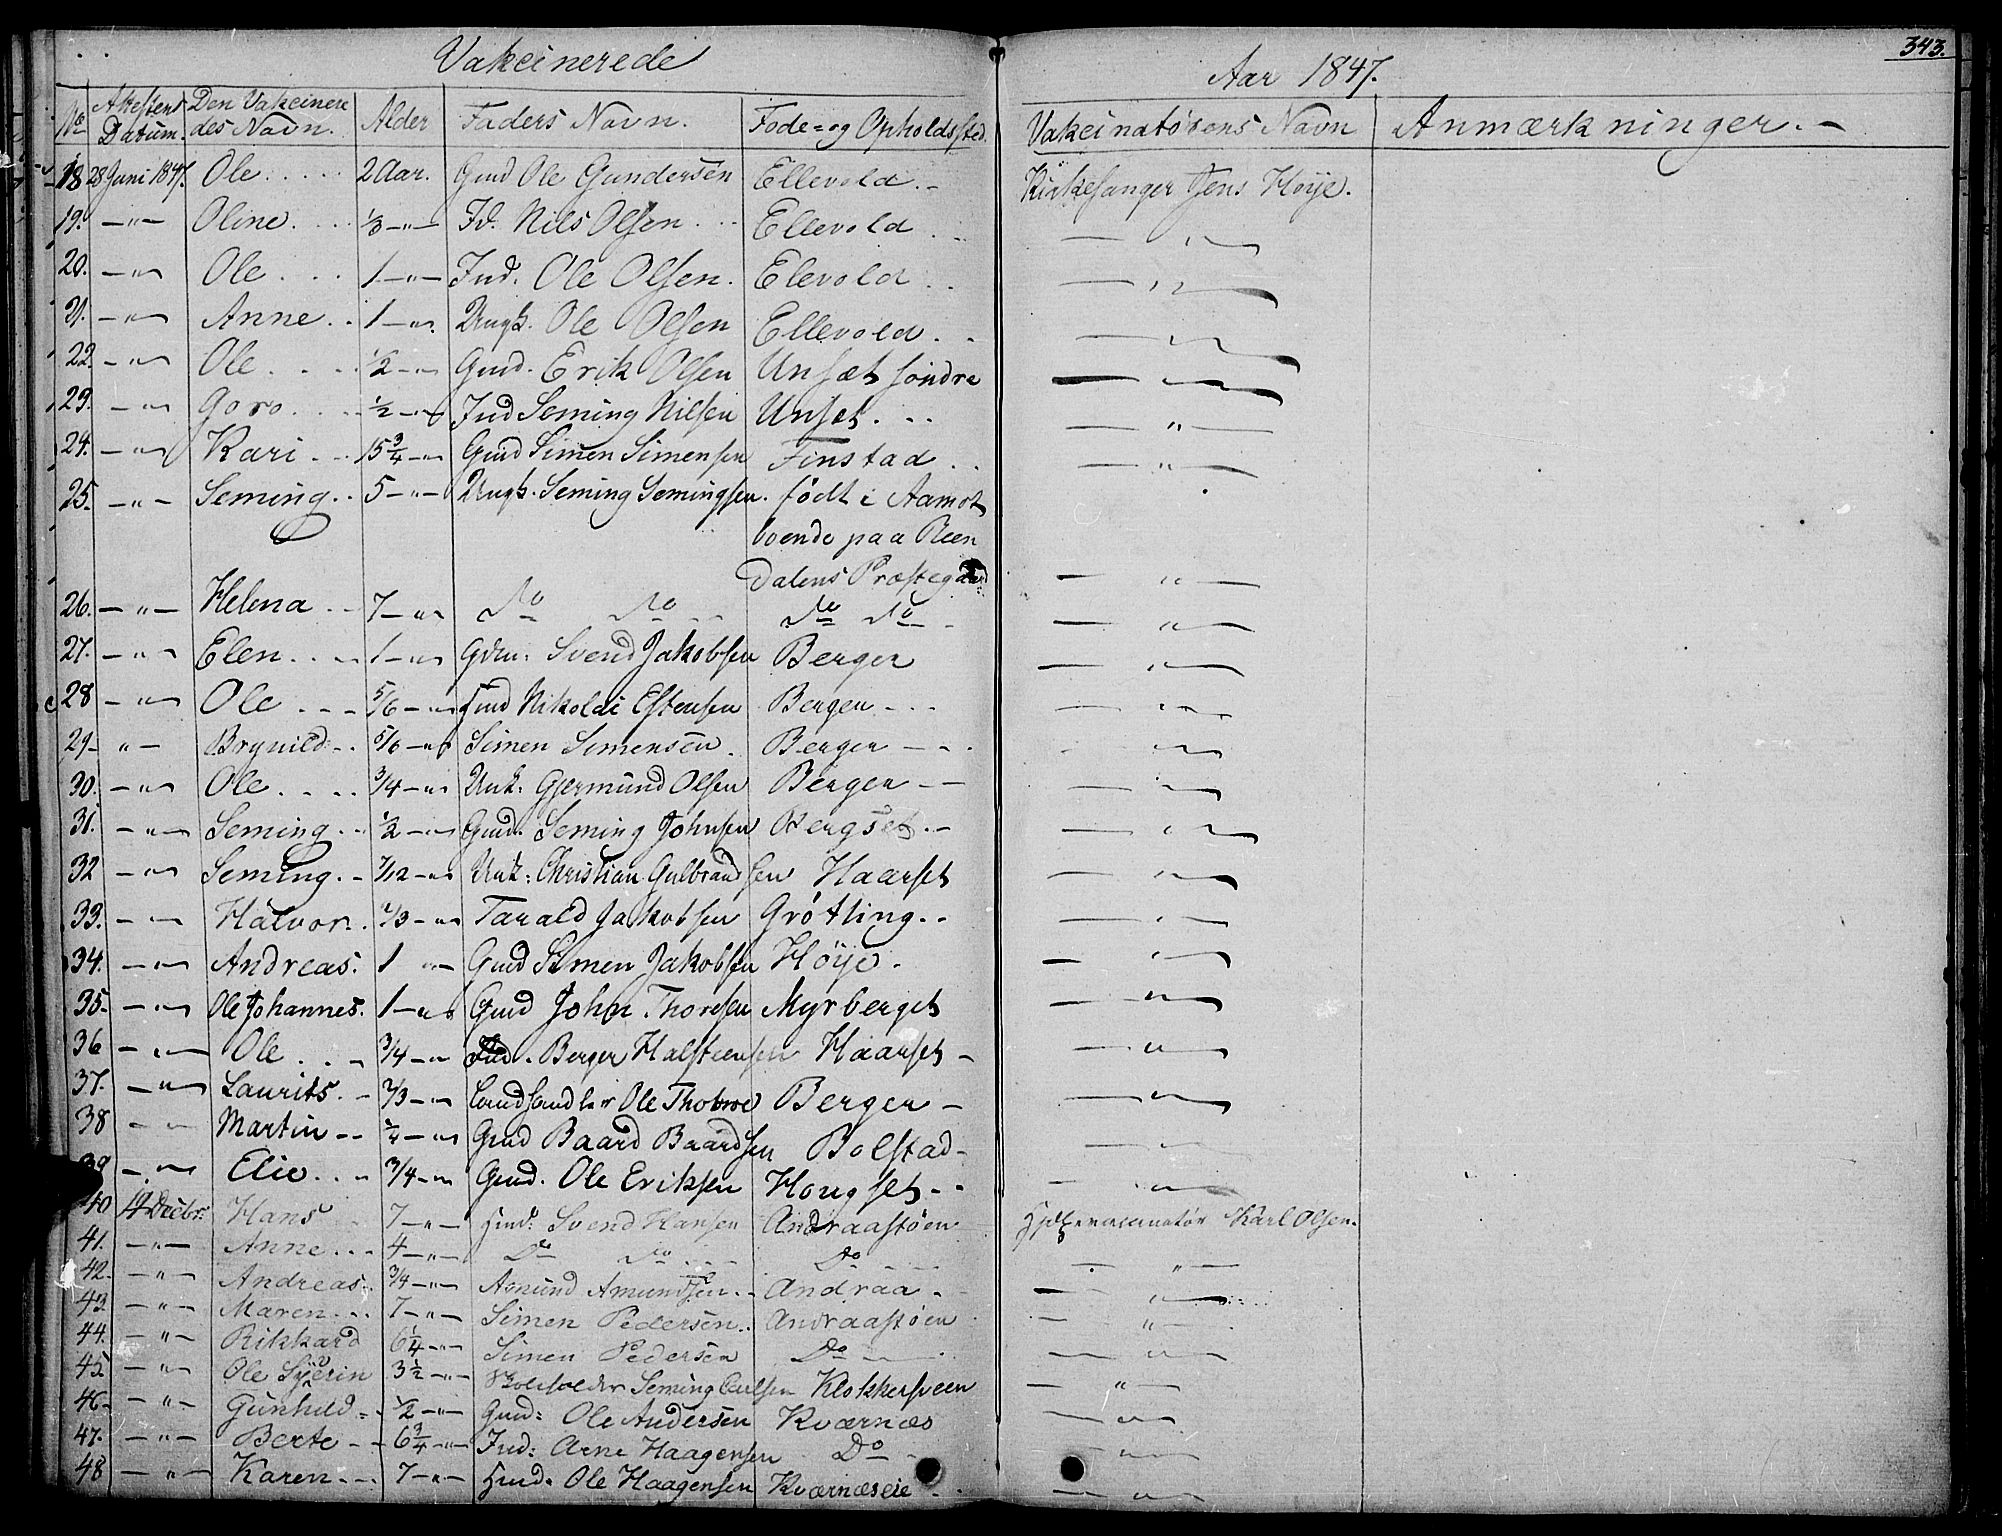 Vakcinerede
Aar 1847.
343.
No Attestens Datum. Den Vakcinere des Navn. Alder Faders Navn. Fode= og Opholdssted. Vakcinatörens Navn Anmærkninger. -
18 28 Juni 1847. Ole 2 Aar. Gmd Ole Gundersen Ellevold. - Kirkesanger Jens Höye.
19. — " — Oline 1/3 — " — Nils Olsen Ellevold — " —
20. — " — Ole 1 — " — Ind. Ole Olsen. Elevold — " —
21. — " — Anne 1 — " — Ungk. Ole Olsen Ellevold — " —
22. — " — Ole 1/2 — " — Gmd. Erik Olsen Unset söndre — " —
23. — " — Goro 1/2 — " — Ind Seming Nilsen Unset — " —
24. — " — Kari 15 3/4 — " — Gmd Simen Simensen Finstad — " —
25. — " — Seming 5 — " — Ungk. Seming Semingsen. födt i Aamot
boende paa Reen
dalens Præstegaard — " —
26. — " — Helena 7 — " — Do Do Do Do — " —
27. — " — Elen 1 — " — Gdm: Svend Jakobsen Berger — " —
28 — " — Ole 5/6 — " — Hmd Nikolai Estensen Berger — " —
29 — " — Brynild 5/6 — " — Simen Simensen Berger — " —
30. — " — Ole 3/4 — " — Unk: Gjermund Olsen Berger — " —
31. — " — Seming 1/2 — " — Gmd. Seming Johnsen Bergset — " —
32 — " — Seming 7/12 — " — Unk: Christian Gulbrandsen Haarset — " —
33. — " — Halvor 2/3 — " — Tarald Jakobsen Grötling — " —
34. — " — Andreas. 1 — " — Gmd Simen Jakobsen Höye. — " —
35. — " — Ole Johannes. 1 — " — Gmd John Thoresen Myrberget — " —
36 — " — Ole 3/4 — " — Berger Halsteensen Haarset — " —
37. — " — Laurits 2/3 — " — Landhandler Ole Berger — " —
38 — " — Martin — " — Gmd Baard Baardsen Bolstad — " —
39 — " — Elie 3/4 — " — Gmd. Ole Eriksen Hougset — " —
40 Decbr. Hans 7 — " — Hmd. Svend Hansen Andraastöen Hjelpevaccinatör Karl Olsen.
41. — " — Anne 4 — " — Do Do Do
42. — " — Andreas 3/4 — " — Amund Amundsen Andraa — " —
43. — " — Maren 7 — " — Simen Pedersen Andraastöen — " —
44. — " — Rikkard 6 1/4 — " — Simen Pedersen Do — " —
45. — " — Ole Syverin 3 1/2 — " — Skoleholder Seming Klokkersveen — " —
46. — " — Gunhild 1/2 — " — Gmd: Ole Andersen Kværnæs — " —
47. — " — Berte 6 3/4 — " — Ind: Arne Haagensen Do — " —
48 — " — Karen 7 — " — Hmd. Ole Haagensen Kværnæseie — " —